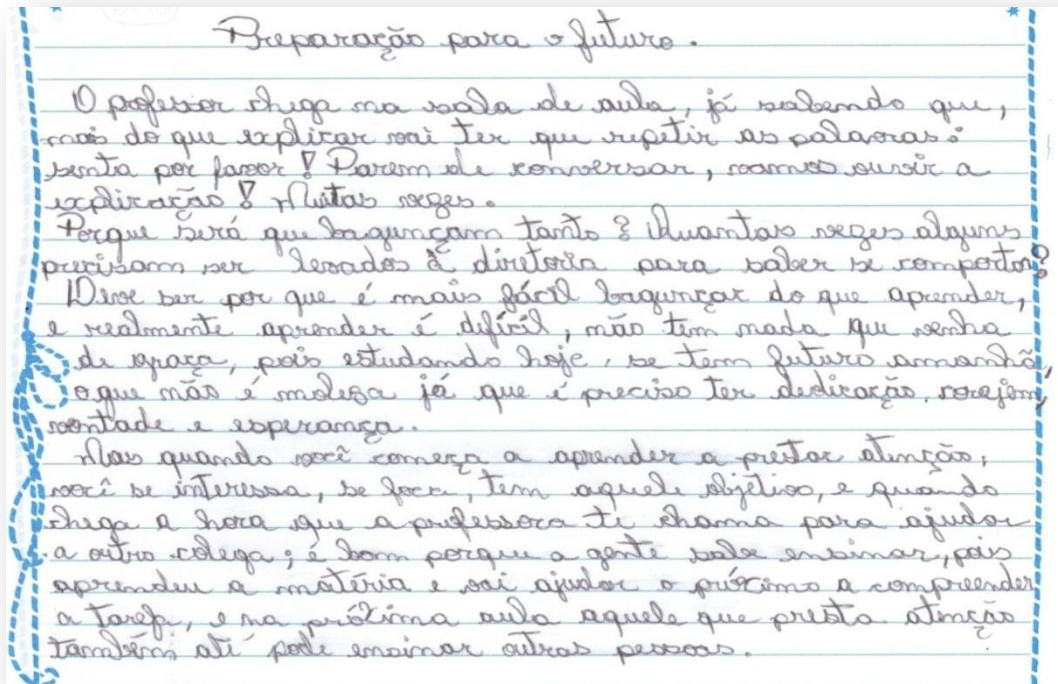 Preparação para o futuro.
O professor chega na sala de aula, já sabendo que,
mais do que explicar vai ter que repetir as palavras:
senta por favor! Parem de conversar, vamos ouvir a
explicação! Muitas vezes.
Porque será que bagunçam tanto? Quantas vezes alguns
precisam ser levados à diretoria para saber se comportar?
Deve ser por que é mais fácil bagunçar do que aprender,
e realmente aprender é difícil, não tem nada que venha
de graça, pois estudando hoje, se tem futuro amanhã,
oque não é moleza já que é preciso ter dedicação, corajem,
vontade e esperança.
Mas quando você começa a aprender a prestar atenção,
você se interessa, se foca, tem aquele objetivo, e quando
chega a hora que a professora te chama para ajudar
a outro colega; é bom porque a gente sabe ensinar, pois
aprendeu a matéria e vai ajudar o próximo a compreender
a tarefa, e na próxima aula aquele que presta atenção
também até pode ensinar outras pessoas.